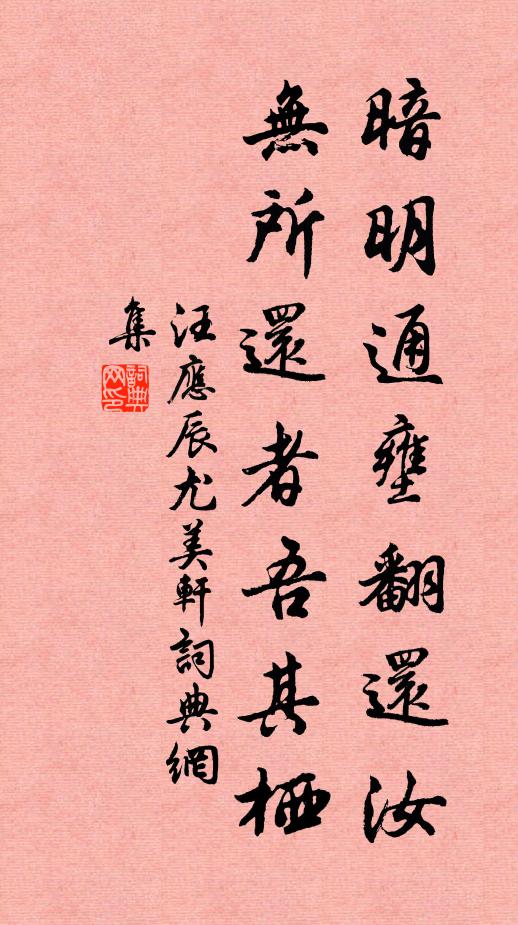 暗明通壅翻還汝
無所還者吾其栖
汪應辰尤美軒詞典網
集
詞典网印